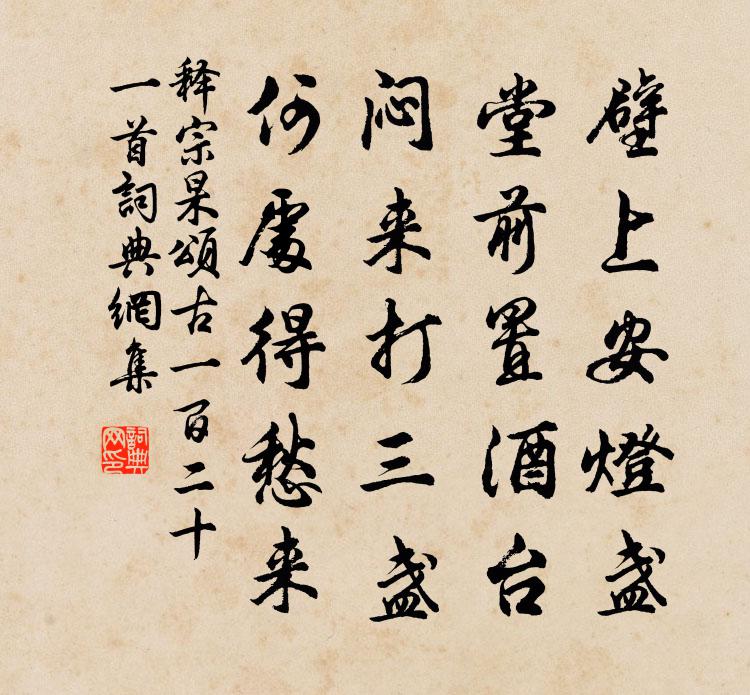 壁上安燈盞
堂前置酒台
闷来打三盏
何處得愁来
释宗杲頌古一百二十
一首詞典網集
詞典网印